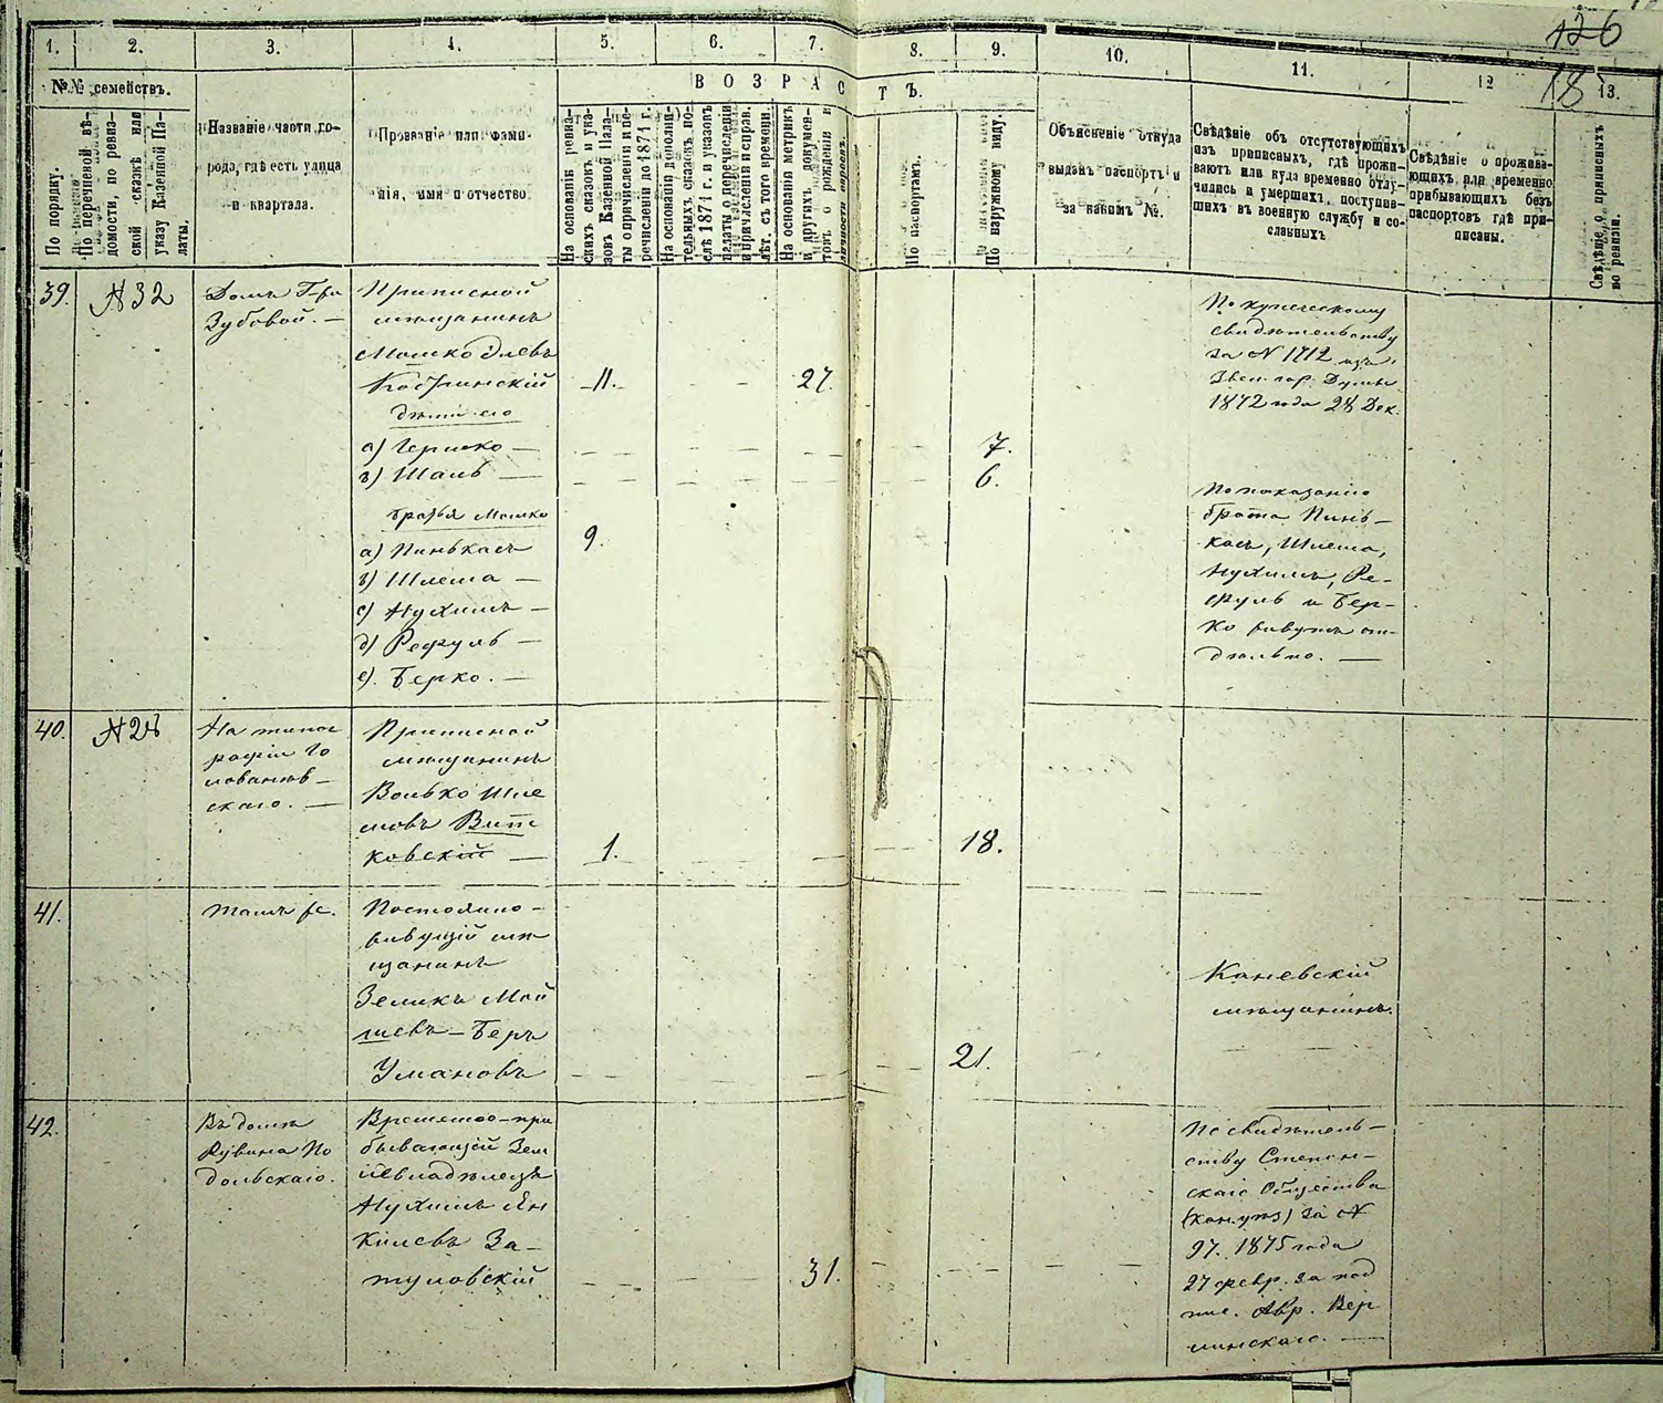 126
18
1.
2.
3.
4.
5.
6.
7.
8.
9.
10.
11.
12
13.
№№ семействъ.
По порядку.
По перечневой вѣ-
домости, по ревиз-
ской сказкѣ или
указу Казенной Па-
латы.
Названіе части го-
рода, гдѣ есть улица
и квартала.
Прозваніе или фами-
лія, имя и отчество
ВОЗРАСТЪ.
На основаніи ревиз-
скихъ сказокъ и ука-
зовъ Казенной Пала-
ты о причисленіи и пе-
речисленіи до 1871 г.
На основаніи дополни-
тельныхъ сказокъ по-
слѣ 1871 г. и указовъ
палаты о перечисленіи
и причисленіи и справ.
лѣт. съ того времени.
На основаніи метрикъ
и другихъ докумен-
товъ о рожденіи и
личности евреевъ.
По паспортамъ.
По наружному виду.
Объясненіе откуда
выданъ паспортъ и
за какимъ №.
Свѣдѣніе объ отсутствующихъ
изъ приписныхъ, гдѣ прожи-
ваютъ или куда временно отлу-
чились и умершихъ, поступив-
шихъ въ военную службу и со-
сланныхъ
Свѣдѣніе о прожива-
ющихъ или временно
прибывающихъ безъ
паспортовъ гдѣ при-
писаны.
Свѣдѣніе о приписныхъ
по ревизіи.
39.
№ 32
Домъ Г-жи
Зубовой. —
Приписной
мѣщанинъ
Мошко
дѣти его
а) Гершко —
в) Шаль —
братья Мошко
а) Пинькасъ
в) Шлема —
с) Нухимъ —
д) Рефуль —
е). Берко. —
11.
9.
27.
7.
6.
По купеческому
свидѣтельству
за № 1712
Звен. гор. Думы
1872 года 28 Дек.
По показанію
брата Пинь-
касъ, Шлема,
Нухимъ, Ре-
фуль и Бер-
ко живутъ от-
дѣльно. —
40.
На типог
рафіи Го
лованев-
скаго. —
Приписной
мѣщанинъ
Волько Шле
мовъ Вит
ковскій —
1.
18.
41.
тамъ же.
Постоянно-
живущій мѣ
щанинъ
Зеликъ Мой
шевъ-Беръ
Умановъ
21.
Каневскій
мѣщанинъ.
42.
Въ домѣ
Рувина По
дольскаго.
Временно-при
бывающій Зем
левладѣлецъ
Нухимъ Ян
келевъ За-
туловскій
31.
По свидѣтель-
ству Степан-
скаго Общества
(кан. уѣз) за №
97. 1875 года
27 февр. за под
пис. Авр. Вер